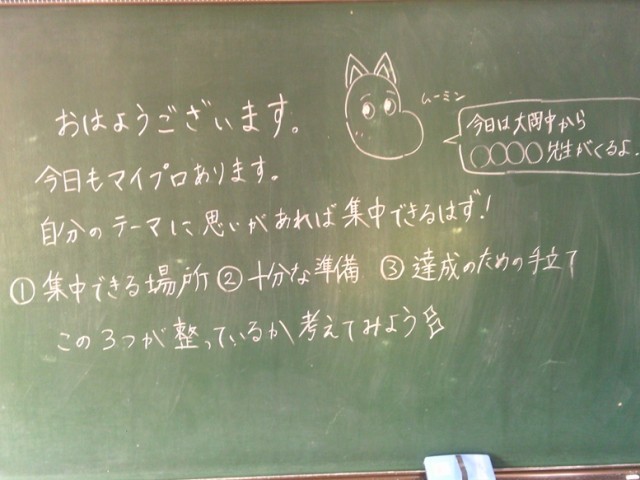 おはようございます。
ムーミン
今日は大岡中から
○○○○先生がくるよ.
今日もマイプロあります。
自分のテーマに思いがあれば集中できるはず!
①集中できる場所 ②十分な準備 ③達成のための手立て
この3つが整っているか考えてみよう